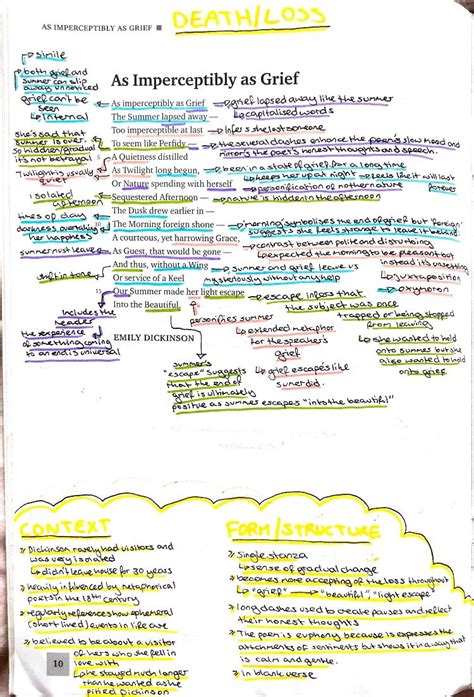 AS IMPERCEPTIBLY AS GRIEF ■
DEATH/LOSS
simile
both grief and
summer can slip
away unnoticed
grief can't be
seen
internal
she's sad that
summer is over.
so hidden/gradual
it's not betrayal
Twilight is usually
isolated
afternoon
times of day
darkness overtaking
her happiness
summer must leave
shift in tone
Includes the
reader
the experience
of something coming
to an end is universal
As Imperceptibly as Grief
As imperceptibly as Grief
The Summer lapsed away —
Too imperceptible at last
To seem like Perfidy —
A Quietness distilled
As Twilight long begun,
Or Nature spending with herself
Sequestered Afternoon —
The Dusk drew earlier in —
The Morning foreign shone —
A courteous, yet harrowing Grace,
As Guest, that would be gone —
And thus, without a Wing
Or service of a Keel
Our Summer made her light escape
Into the Beautiful.
EMILY DICKINSON
grief lapsed away like the summer
capitalised words
Infers she lost someone
the several dashes enhance the poem's slow mood and
mirrors the poem's honest thoughts and speech.
been in a state of grief for a long time
keeps her up at night
feels like it will last
forever
personification of mother nature
nature is hidden in the afternoon
'morning' symbolises the end of grief but 'foreign'
suggests she feels strange to leave it behind
contrast between polite and disturbing
expected the morning to be pleasant but
instead it's unsettling
summer and grief leave us
mysteriously without any help
juxtaposition
oxymoron
escape infers that
the subject was once
trapped or being stopped
from leaving
she wanted to hold
onto summer but she
also wanted to hold
onto grief
personifies summer
extended metaphor
for the speaker's
grief
grief escapes like
summer did.
summer's
"escape" suggests
that the end of
grief is ultimately
positive as summer escapes "into the beautiful"
CONTEXT
Dickinson rarely had visitors and
was very isolated
didn't leave house for 30 years
heavily influenced by metaphorical
poets in the 17th century
regularly references how ephemeral
(short lived) events in life are
believed to be about a visitor
of hers who she fell in
love with
she stayed much longer
than he wanted as he
pitied Dickinson
FORM/STRUCTURE
single stanza
sense of gradual change
becomes more accepting of the loss throughout
"grief" → "beautiful", "light escape"
long dashes used to create pauses and reflect
their honest thoughts
The poem is euphony because it expresses the
attachments of sentiments but shows it in a way that
is calm and gentle.
in blank verse
10